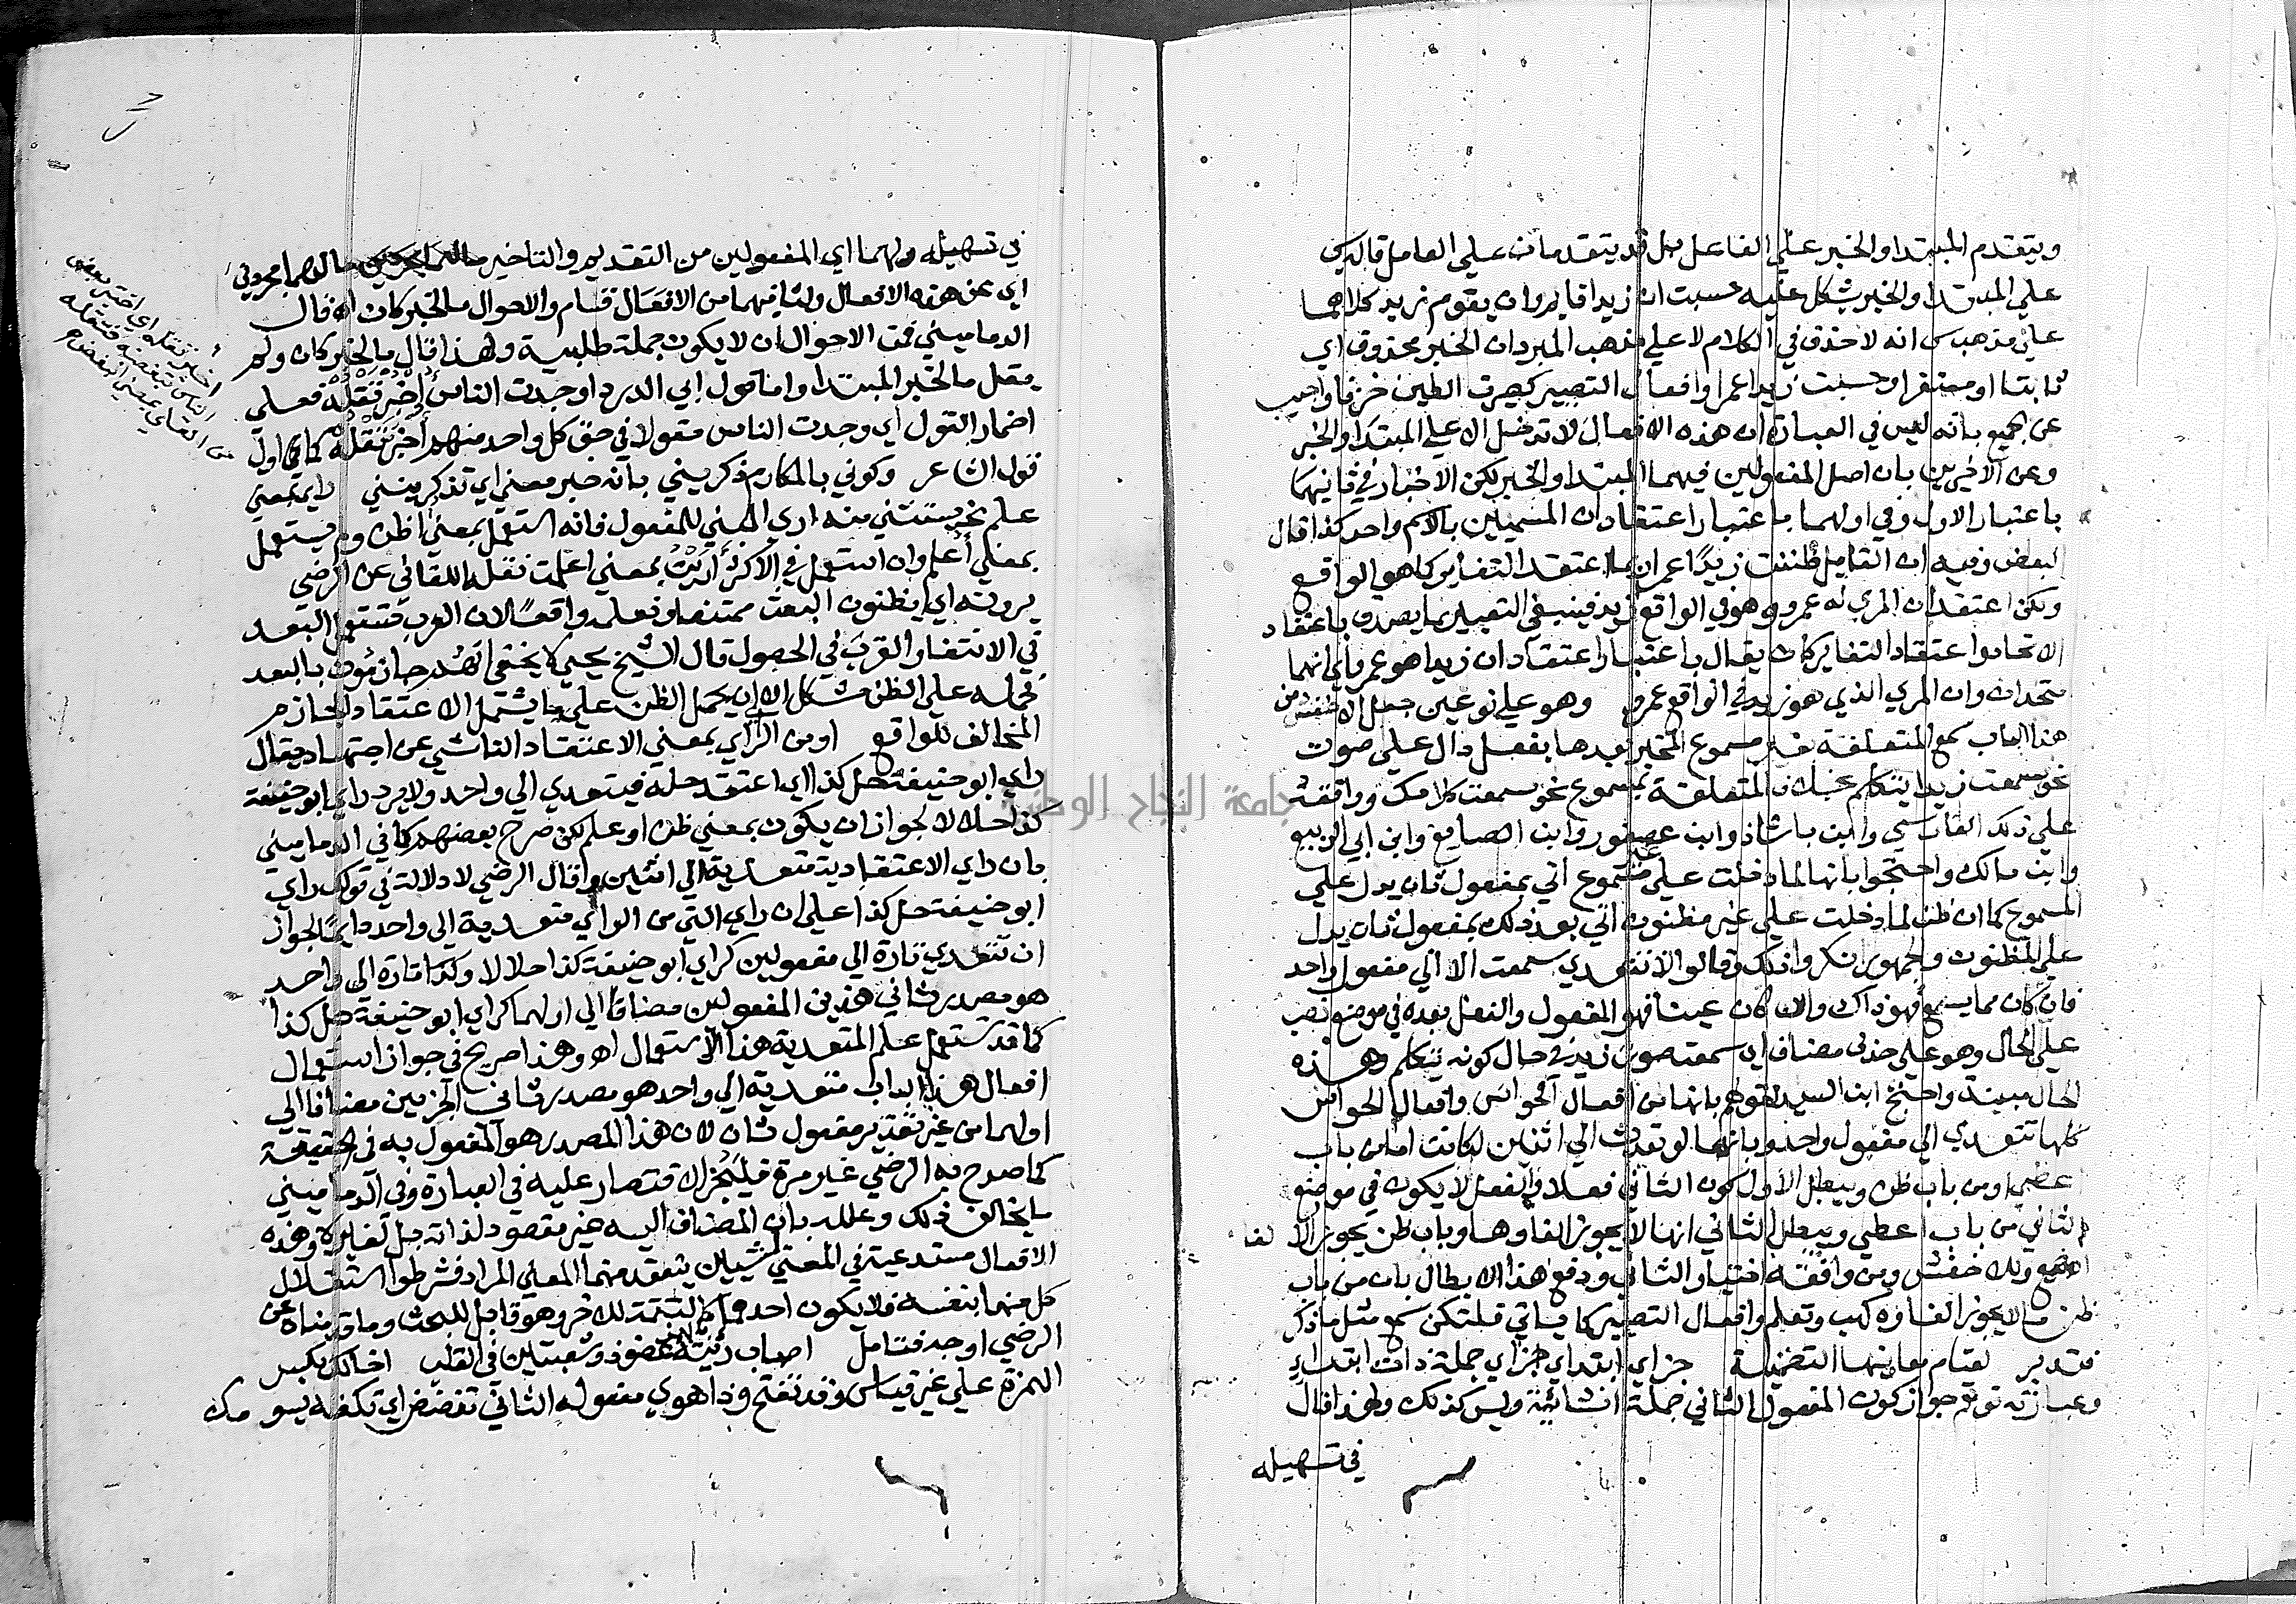 ويتقدم المبتدا والخبر علي الفاعل بل قد يتقدمان علي العامل قاله يس
علي المبتدا والخبر يشكل عليه حسبت ان زيدا قايم وان يقوم زيد كلاهما
علي مذهب س انه لا حذف في الكلام لا علي مذهب المبرد ان الخبر محذوف اي
ثابتا او مستقرا وحسبت زيدا عمرا وافعال التصيير كصيرت الطين خزفا واجيب
عن الجميع بانه ليس في العبارة ان هذه الافعال لا تدخل الا علي المبتدا والخبر
وعن الاخيرين بان اصل المفعولين فيهما المبتدا والخبر لكن الاخبار في ثانيهما
باعتبار الاول وفي اولهما باعتبار اعتقاد ان المسميين بالاسم واحد كذا قال
البعض وفيه ان القايل ظننت زيدًا عمرا لم يعتقد التغاير كما هو الواقع
ولكن اعتقد ان المري له عمرو وهو في الواقع زيد فينبغي التعبير بما يصدق باعتقاد
الاتحاد واعتقاد التغاير كان يقال باعتبار اعتقاد ان زيدا هو عمرو اي انهما
متحدان وان المري الذي هو زيد في الواقع عمرو وهو علي نوعين جعل الاخفش من
هذا الباب سمع المتعلقة بغير مسموع المخبر بعدها بفعل دال علي صوت
نحو سمعت زيدا يتكلم بخلاف المتعلقة بمسموع نحو سمعت كلامك ووافقه
علي ذلك الفارسي وابن باشاذ وابن عصفور وابن الصايغ وابن ابي الربيع
وابن مالك واحتجوا بانها لما دخلت علي غير مسموع اتي بمفعول ثان يدل علي
المسموع كما ان ظن لما دخلت علي غير مظنون اتي بعد ذلك بمفعول ثان يدل
علي المظنون والجمهور انكروا ذلك وقالوا لا تتعدي سمعت الا الي مفعول واحد
فان كان مما يسمع فهو ذاك والا كان عينا فهو المفعول والفعل بعده في موضع نصب
علي الحال وهو علي حذف مضاف اي سمعت صوت زيد في حال كونه يتكلم وهذه
الحال مبينة واحتج ابن السيد لقولهم بانها من افعال الحواس وافعال الحواس
كلها تتعدي الي مفعول واحد وبانها لو تعدت الي اثنين لكانت اما من باب
اعطي او من باب ظن ويبطل الاول كون الثاني فعلا والفعل لا يكون في موضع
الثاني من باب اعطي ويبطل الثاني انها لا يجوز الغاوها وباب ظن يجوز الالغا
وللاخفش ومن وافقه اختيار الثاني ودفع هذا الابطال بان من باب
ظن ما لا يجوز الغاوه كهب وتعلم وافعال التصيير كما ياتي فلتكن سمع مثل ما ذكر
فتدبر لقيام معانيها التضمنية جزاي ابتداي جزاي جملة ذات ابتداء
وعبارته توهم جواز كون المفعول الثاني جملة انشائية وليس كذلك ولهذا قال
في تسهيله
في تسهيله ولهما اي المفعولين من التقديم والتاخير ما لهما مجردين
اي عن هذه الافعال ولثانيهما من الافعال قسام والاحوال ما لخبر كان اه قال
الدماميني فمن الاحوال ان لا يكون جملة طلبية ولهذا قال ما لخبر كان ولم
يقل ما لخبر المبتدا واما قول ابي الدرداء وجدت الناس أُخْبُرْ تَقْلُهْ فعلي
اضمار القول اي وجدت الناس مقولا في حق كل واحد منهم أخبر تقله كما في اول
قول الشاعر وكوني بالمكارم ذكريني بانه خبر معني اي تذكرينني راي بمعني
علم نحو يستثني منه اري المبني للمفعول فانه استعمل بمعني اظن ولم يستعمل
بمعني أعلم وان استعمل في الاكثر أريت بمعني اعلمت نقله اللقاني عن الرضي
يرونه اي يظنون البعث ممتنعا ونعلمه واقعًا لان العرب تستعمل البعد
في الانتفاء والقرب في الحصول قال الشيخ يحيي لا يخفي انهم جازمون بالبعد
فحمله علي الظن مشكل الا ان يحمل الظن علي ما يشتمل الاعتقاد الجازم
المخالف للواقع او من الراي بمعني الاعتقاد الناشي عن اجتهاد يقال
راي ابو حنيفة حل كذا اي اعتقد حله فيتعدي الي واحد ولا يرد راي ابو حنيفة
كذا حلالا لجواز ان يكون بمعني ظن او علم لكن صرح بعضهم كما في الدماميني
بان راي الاعتقادية متعدية الي اثنين وقال الرضي لا دلالة في قولك راي
ابو حنيفة حل كذا علي ان راي التي من الراي متعدية الي واحد دايمًا لجواز
ان تتعدي تارة الي مفعولين كراي ابو حنيفة كذا حلالا وكذا تارة الي واحد
هو مصدر ثاني هذين المفعولين مضافا الي اولهما كراي ابو حنيفة حل كذا
كما قد تستعمل علم المتعدية هذا الاستعمال اه وهذا صريح في جواز استعمال
افعال هذا الباب متعدية الي واحد هو مصدر ثاني الجزءين مضافا الي
اولهما من غير تقدير مفعول ثان لان هذا المصدر هو المفعول به في الحقيقة
كما صرح به الرضي غير مرة فليجز الاقتصار عليه في العبارة وفي الدماميني
ما يخالف ذلك وعلله بان المضاف اليه غير مقصود لذاته بل لغيره وهذه
الافعال مستدعية في المعني لشيئين ينعقد منهما المعني المراد فشرطوا استقلال
كل منهما بنفسه فلا يكون احدهما كالتتمة للاخر وهو قابل للبحث وما قدمناه عن
الرضي اوجه فتامل اصاب رئته عضو ذو شعبتين في القلب اخالك بكسر
الهمزة علي غير قياس وقد تفتح وذا هوي مفعوله الثاني تغضض اي تكفه يسومك
أخبر تقله اي اختبر بعض
الناس تبغضه فتقله
من القلي بمعني البغض م
جامعة النجاح الوطنية